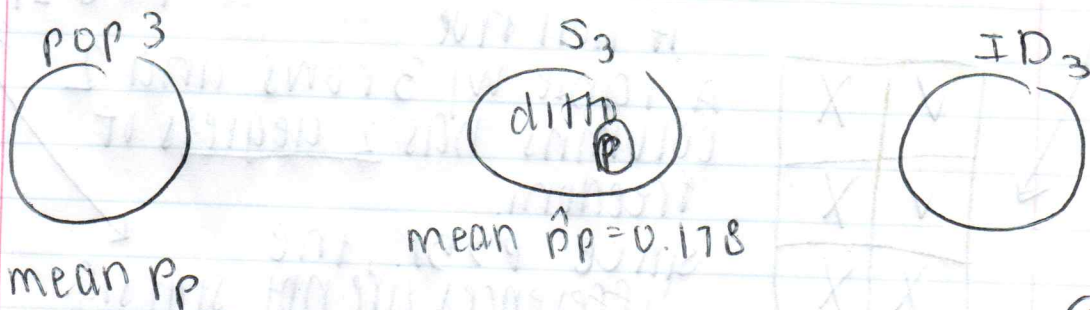 pop 3
S₃
ID₃
ditto
p
mean p̂p = 0.178
mean Pp